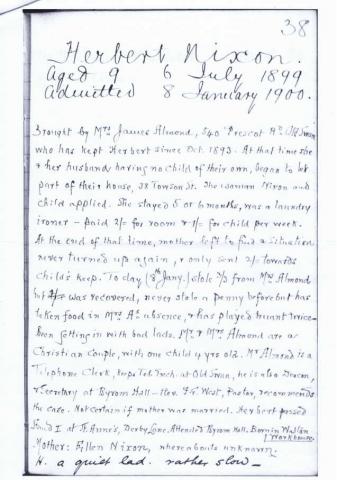 38
Herbert Nixon.
Aged 9 6 July 1899
Admitted 8 January 1900.
Brought by Mrs James Almond, 540 Prescot Rd Old Swan
who has kept Herbert since Oct. 1893. At that time she
& her husband having no child of their own, began to let
part of their house, 38 Towson St. The woman Nixon and
child applied. She stayed 5 or 6 months, was a laundry
ironer – paid 2/= for room & 1/= for child per week.
At the end of that time, mother left to find a situation
never turned up again, & only sent 2/= towards
child's keep. To day (8th Jany.) stole 7/3 from Mrs Almond
but was recovered, never stole a penny before but has
taken food in Mrs A's absence, & has played truant twice–
been getting in with bad lads. Mr & Mrs Almond are a
Christian Couple, with one child 4 yrs old. Mr Almond is a
Telephone Clerk, Tech. at Old Swan, he is also Deacon,
& Secretary at Byrom Hall – Rev. F.G. West, Pastor, recommends
the case. Not certain if mother was married. Herbert passed
Stand I at St. Anne's, Derby Lane. Attended Byrom Hall. Born in Walton
Workhouse
Mother: Ellen Nixon, whereabouts unknown.
H. a quiet lad. rather slow –